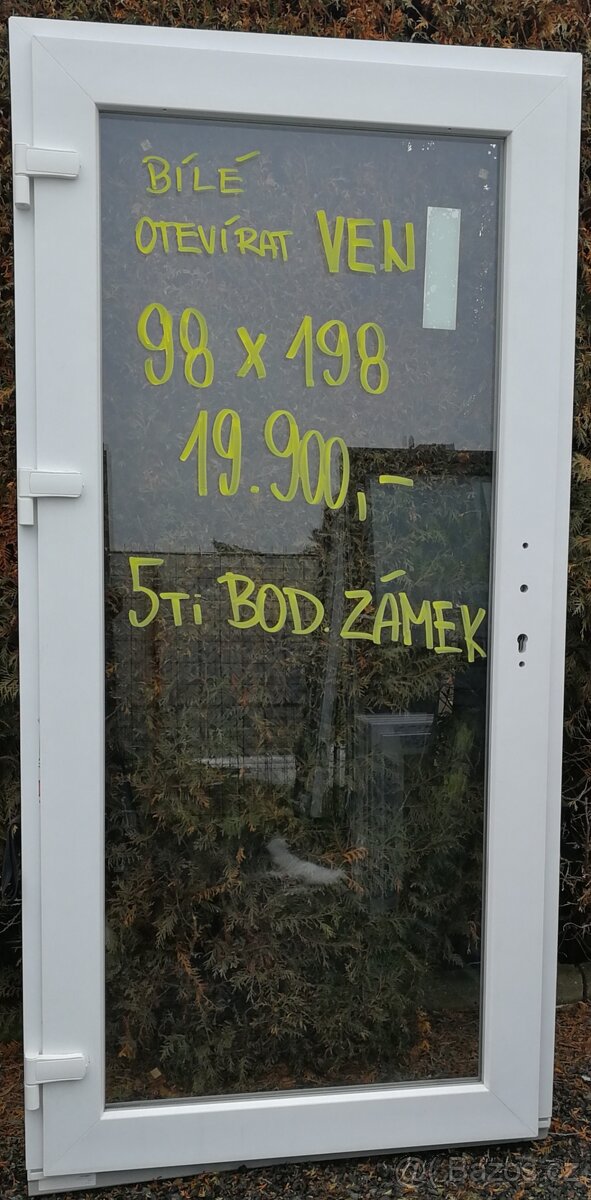 BÍLÉ
OTEVÍRAT VEN
98 x 198
19.900,-
5Ti BOD. ZÁMEK
@( Bazos.cz